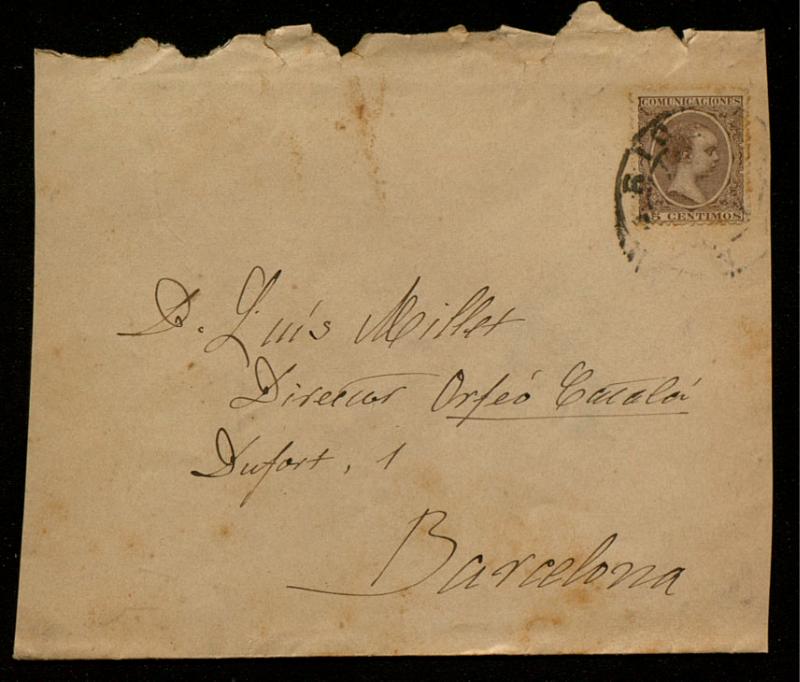 COMUNICACIONES
5 CENTIMOS
D. Luís Millet
Director Orfeó Català
Dufort, 1
Barcelona